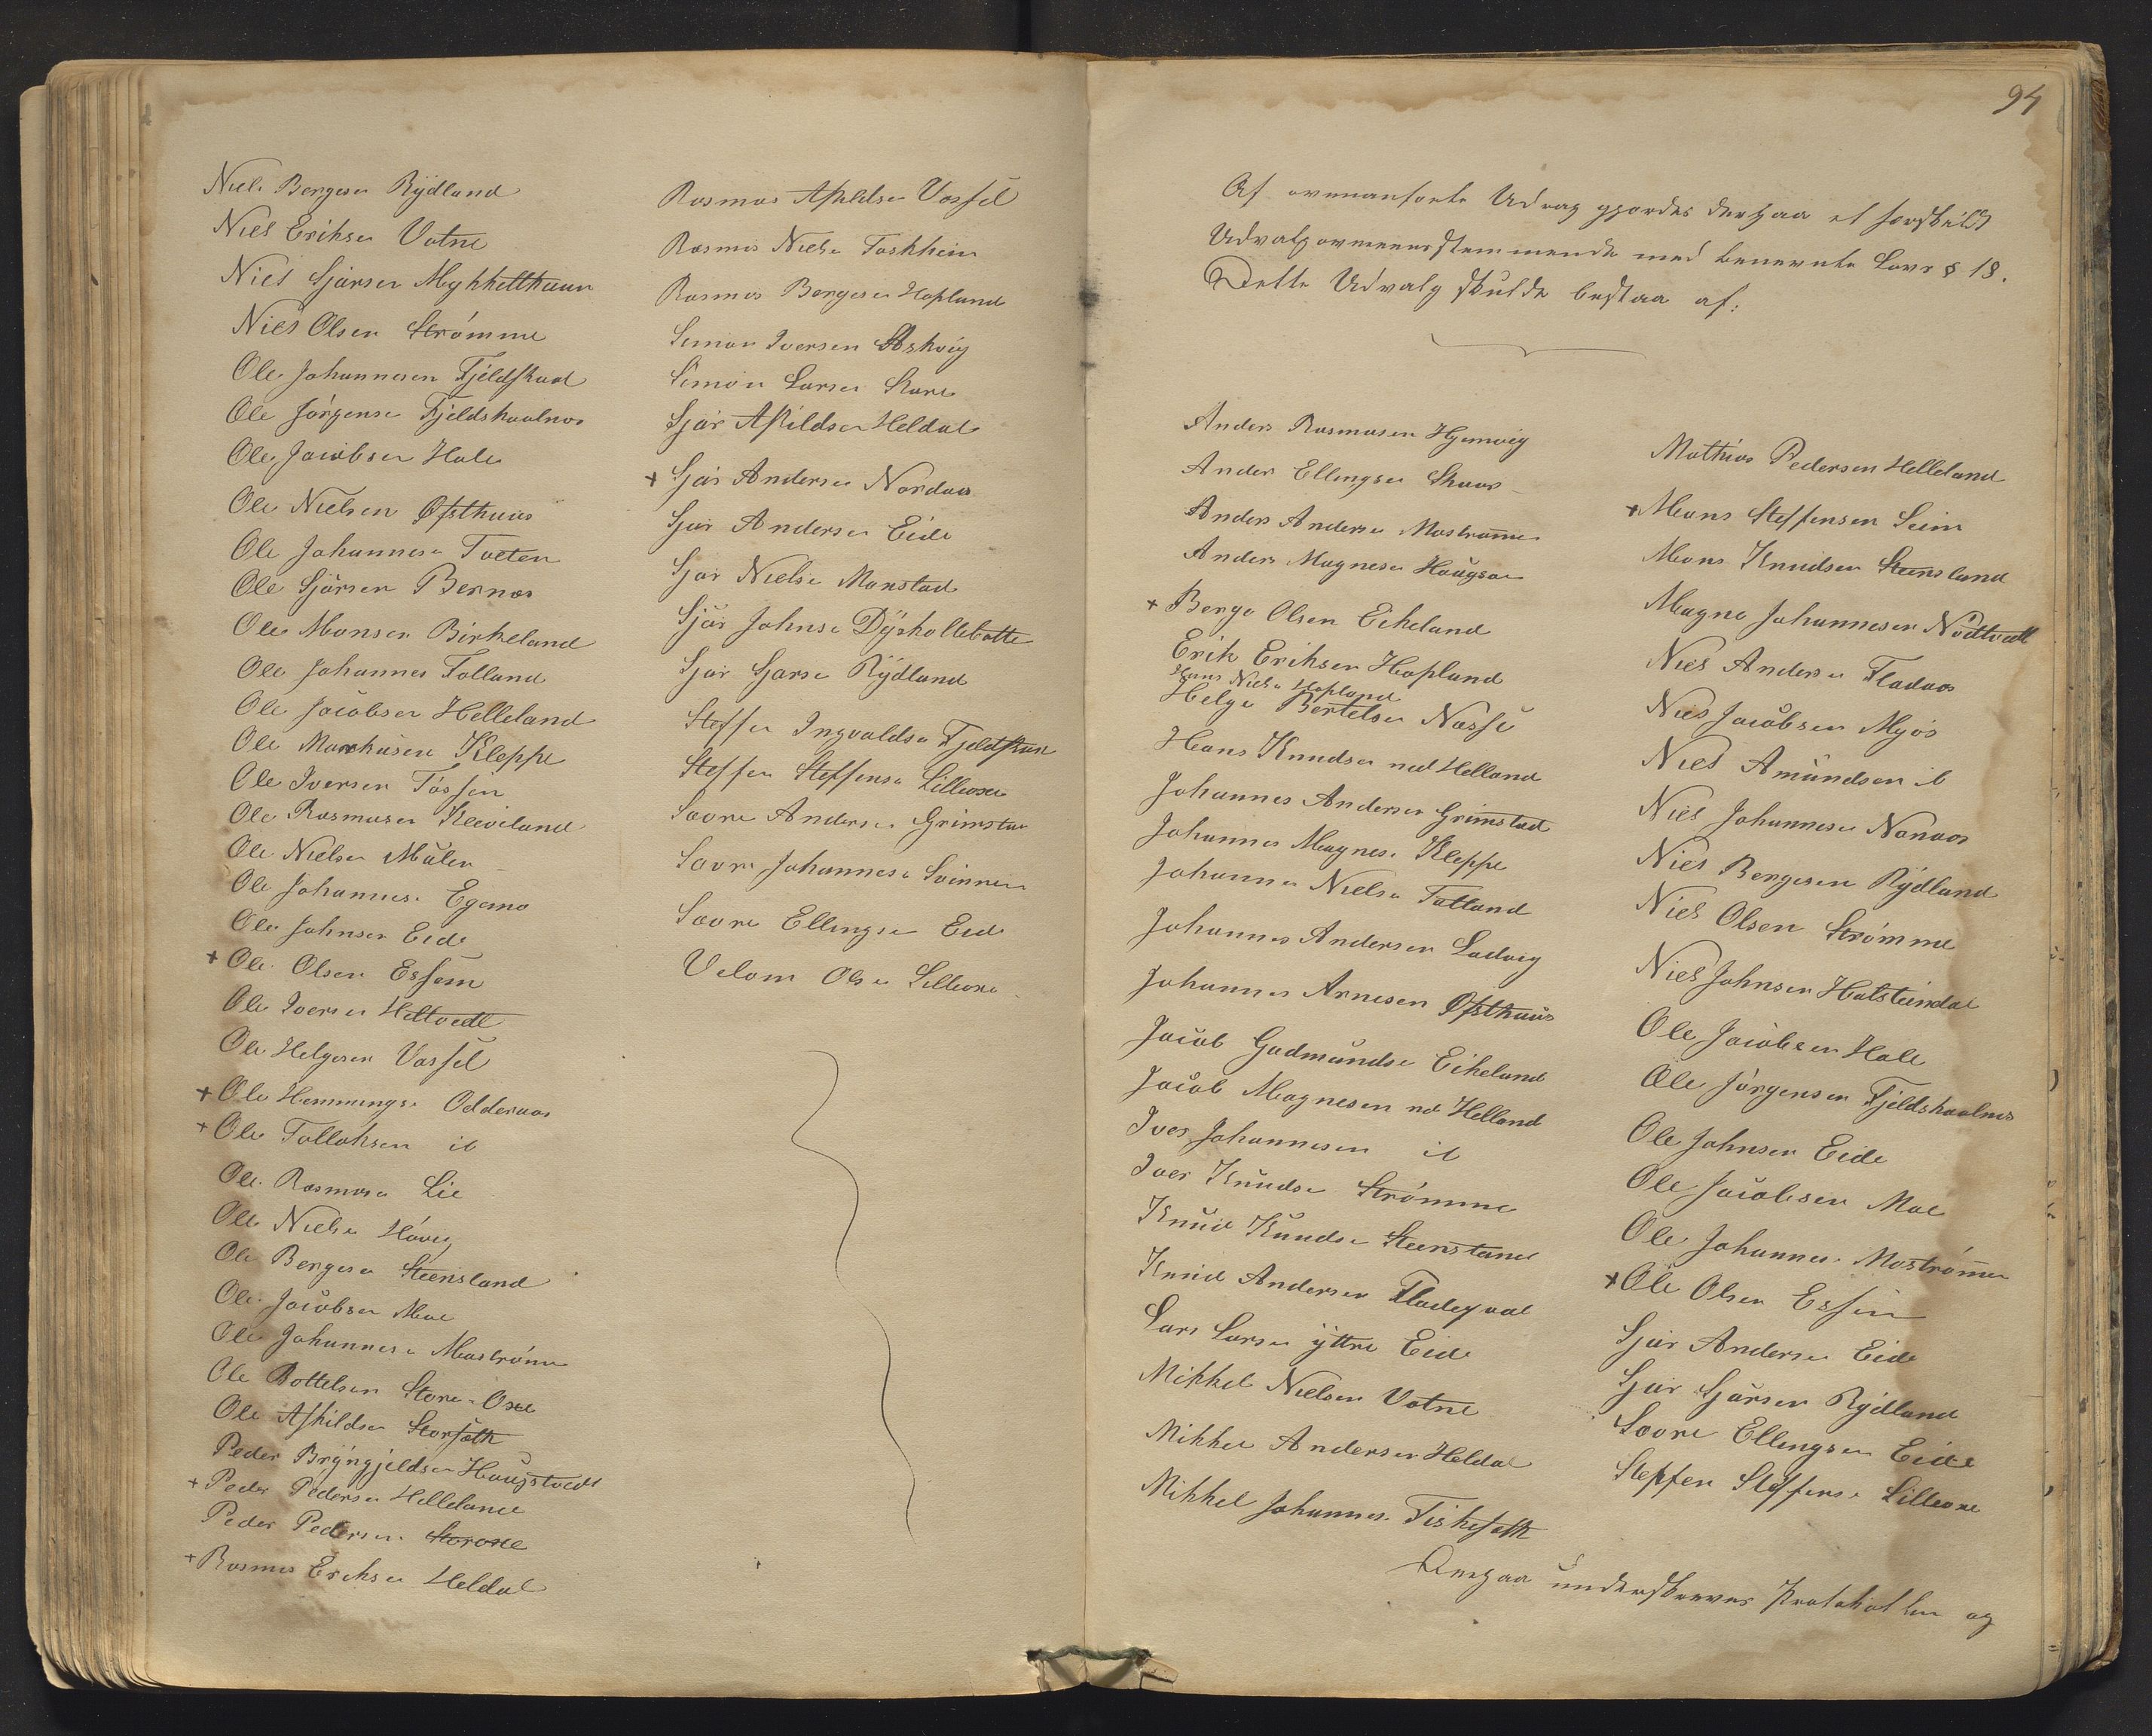 Niels Bergesen Rÿdland
Niels Eriksen Vatne
Niels Sjursen Mykkelthuun
Niels Olsen Strømme
Ole Johannesen Fjeldskaal
Ole Jørgensen Fjeldskaalnes
Ole Jacobsen Hole
Ole Nielsen Øfsthuus
Ole Johannesen Tveten
Ole Sjursen Bernæs
Ole Monsen Birkeland
Ole Johannes Tolland
Ole Jacobsen Helleland
Ole Markusen Kleppe
Ole Iversen Tøssen
Ole Rasmusen Kleiveland
Ole Nielsen Mülen
Ole Johannesen Egemo
Ole Johnsen Eide
+ Ole Olsen Essem
Ole Iversen Hettvedt
Ole Helgesen Vassel
+ Ole Hemmingsen Odderaas
+ Ole Tollaksen ib
Ole Rasmusen Lie
Ole Nielsen Høvig
Ole Bergesen Steensland
Ole Jacobsen Moe
Ole Johannesen Mostrømen
Ole Bottelsen Store-Oxe
Ole Askildsen Storsæth
Peder Brÿngjeldsen Haugstvedt
+ Peder Pedersen Helleland
Peder Pedersen Storoxe
+ Rasmus Eriksen Heldal
Rasmus Askildsen Vassel
Rasmus Nielsen Toskhein
Rasmus Bergesen Hopland
Simon Iversen Askvig
Simon Larsen Skare
Sjur Askildsen Heldal
+ Sjur Andersen Nordaas
Sjur Andersen Eide
Sjur Nielsen Monstad
Sjur Johnsen Dÿrkollebotten
Sjur Sjursen Rÿdland
Steffen Ingvaldsen Fjeldskaal
Steffen Steffensen Lilleoxe
Sovre Andersen Grimstad
Sovre Johannesen Svinnen
Sovre Ellingsen Eide
Velom Olsen Lilleoxe
94
Af ovenanførte Udrag gjordes derpaa et særskildt
Udvalg overeensstemmende med benevnte Lovs § 18.
Dette Udvalg skulde bestaa af:
Anders Rasmusen Hjemvig
Anders Ellingsen Skaar
Anders Andersen Mostrømen
Anders Magnesen Haugsæ
+ Berge Olsen Eikeland
Erik Eriksen Hopland
Hans Nielsen Hopland
Helge Bertelsen Næsse
Hans Knudsen ned Helland
Johannes Andersen Grimstad
Johannes Magnesen Kleppe
Johannes Nielsen Tolland
Johannes Andersen Ladvig
Johannes Arnesen Øfsthuus
Jacob Gudmundsen Eikeland
Jacob Magnesen nd Helland
Iver Johannesen ib
Iver Knudsen Strømme
Knud Knudsen Steensland
Knud Andersen Fladeqval
Lars Larsen ÿttre Eide
Mikkel Nielsen Vatne
Mikkel Andersen Heldal
Mikkel Johannesen Fiskesæth
Mathias Pedersen Helleland
+ Mons Steffensen Seim
Mons Knudsen Steensland
Magne Johannesen Nødtvedt
Niels Andersen Fladaas
Niels Jacobsen Myøs
Niels Amundsen ib
Niels Johannesen Nonaas
Niels Bergesen Rÿdland
Niels Olsen Strømme
Niels Johnsen Holsteindal
Ole Jacobsen Hole
Ole Jørgensen Fjeldskaalnes
Ole Johnsen Eide
Ole Jacobsen Moe
Ole Johannesen Mostrømen
+ Ole Olsen Essem
Sjur Andersen Eide
Sjur Sjursen Rÿdland
Sovre Ellingsen Eide
Steffen Steffensen Lilleoxe
Derpaa underskreves Protokollen og